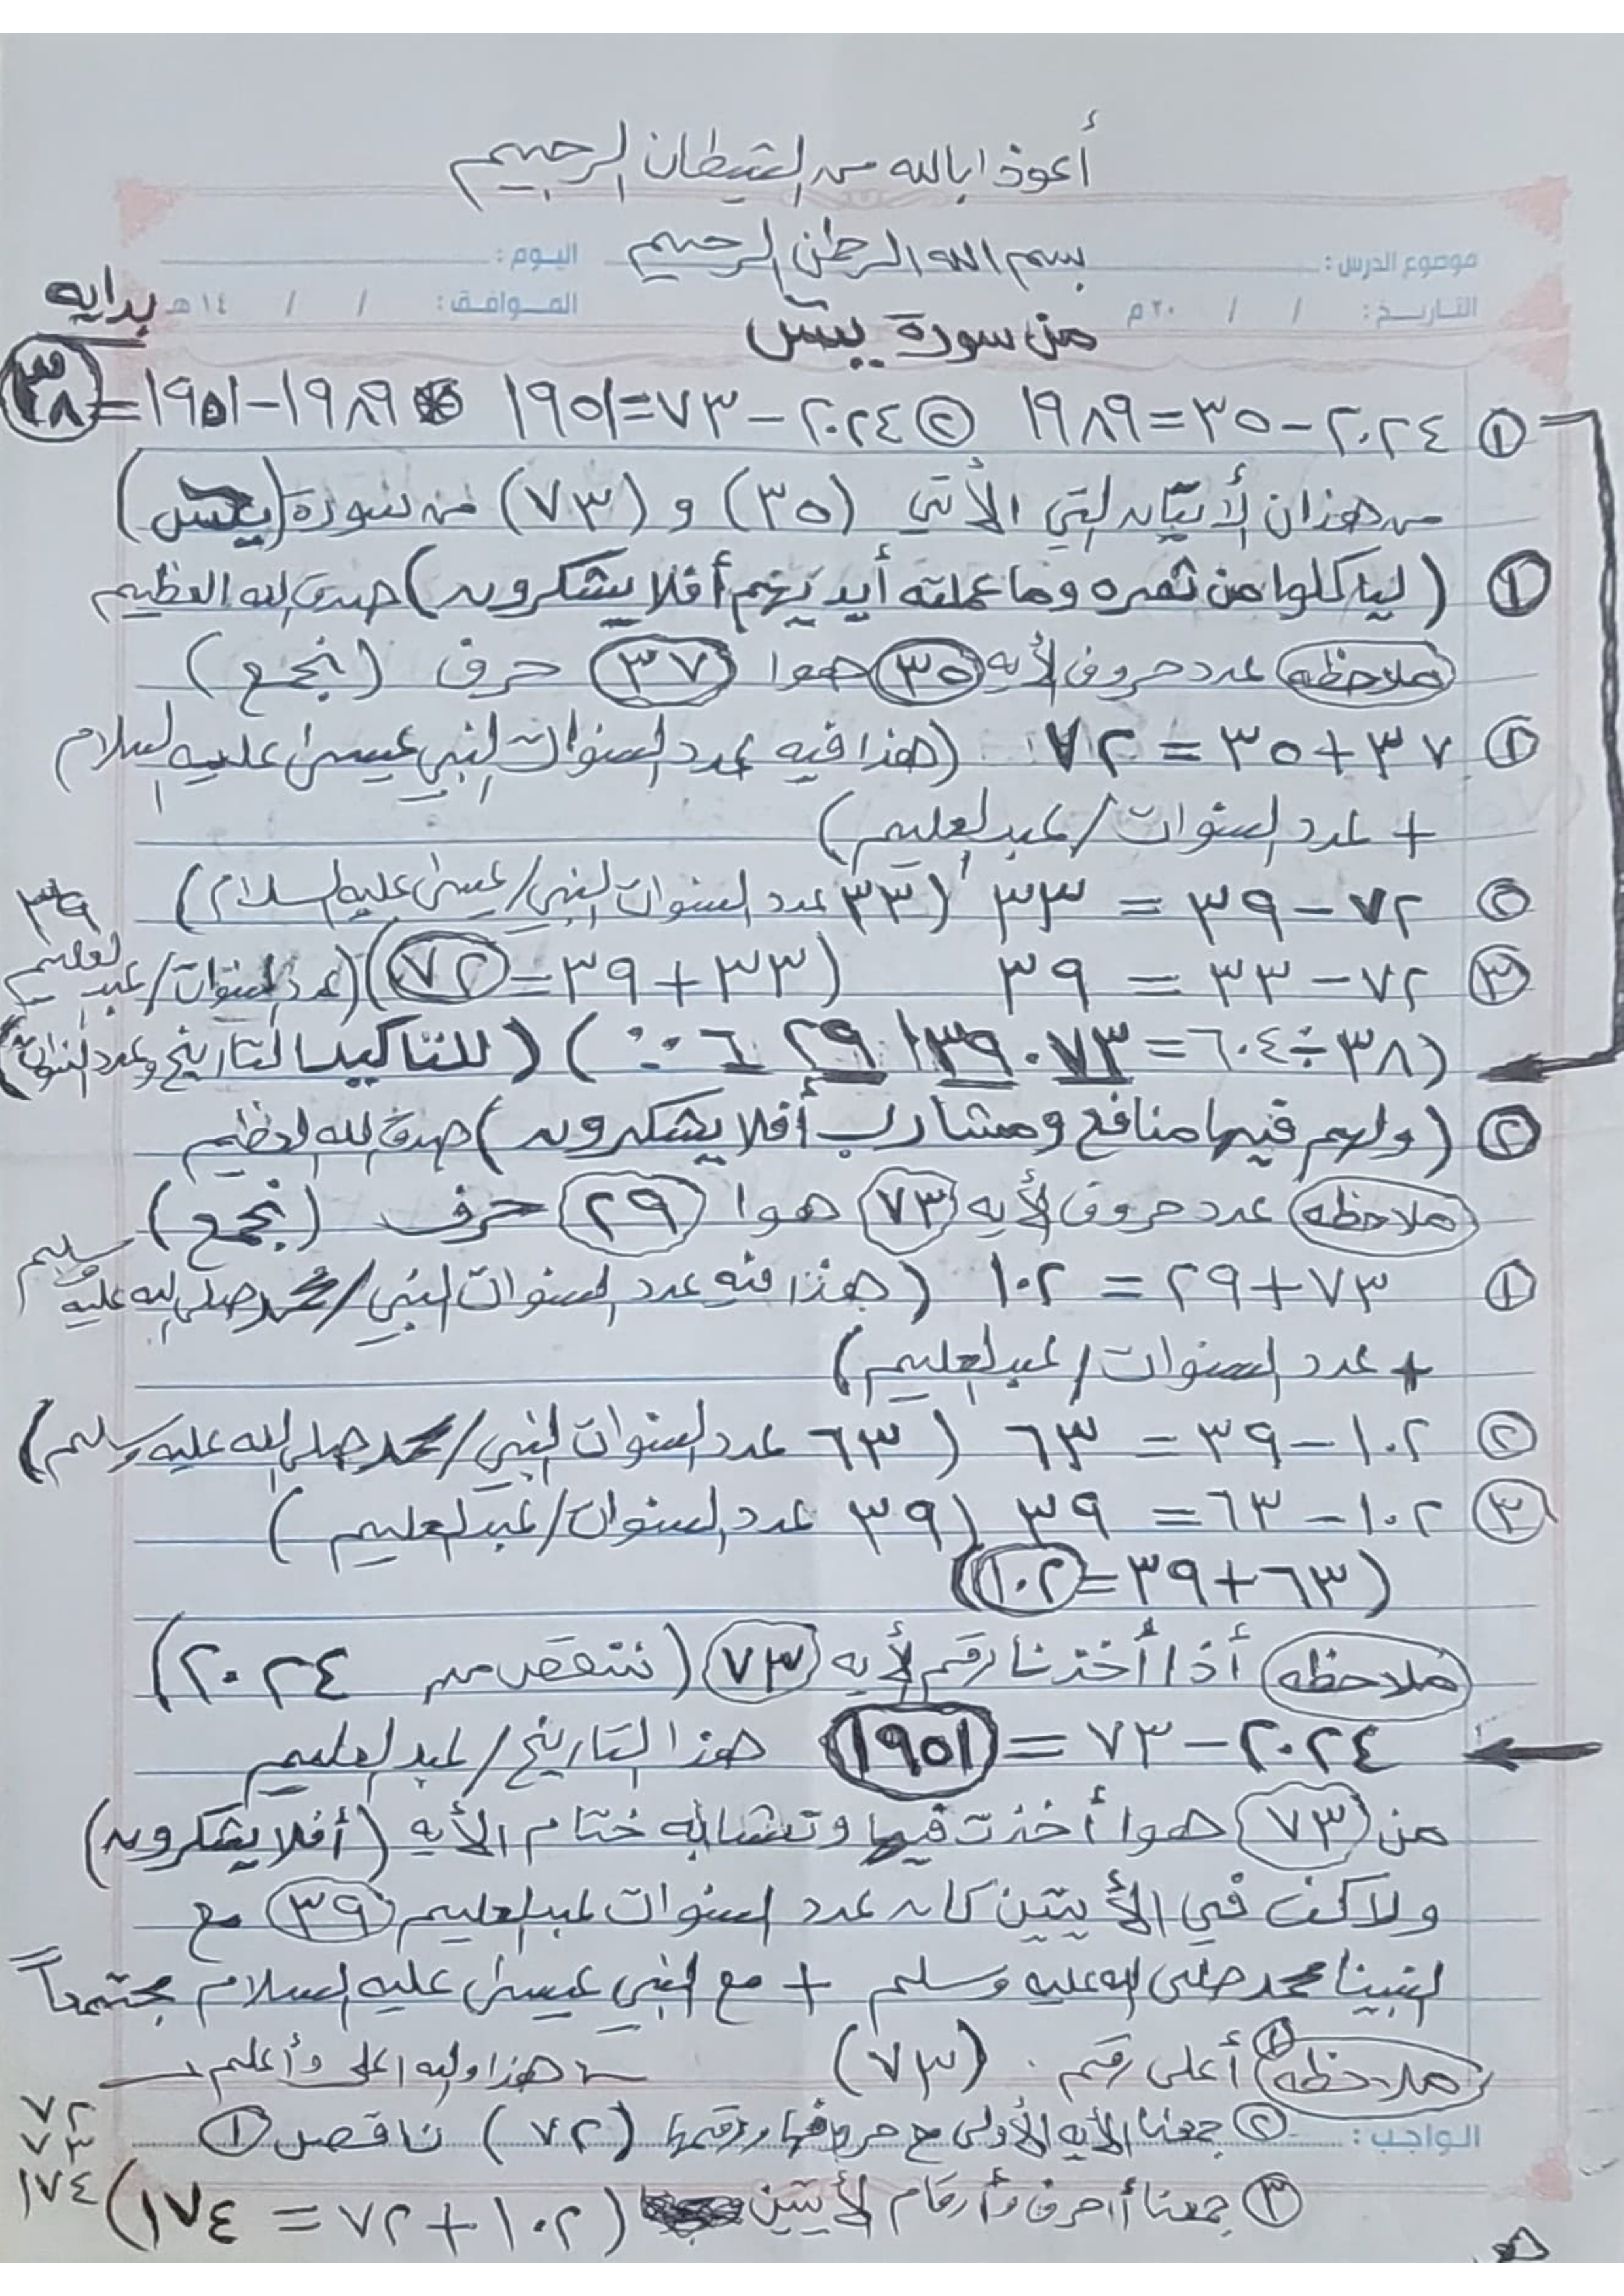 أعوذ ابالله من الشيطان الرجيم
بسم الله الرحمن الرحيم
موضوع الدرس : اليوم :
التاريخ : / / ٢٠م الموافق : / / ١٤هـ
بدايه
من سورة يس
① ٢٠٢٤-٣٥=١٩٨٩ ② ٢٠٢٤-٧٣=١٩٥١ * ١٩٨٩-١٩٥١=٣٨
من هذان الأيتان التي الأتي (٣٥) و (٧٣) من سورة (يس)
① (ليأكلوا من ثمره وما عملته أيديهم أفلا يشكرون) صدق الله العظيم
ملاحظه عدد حروف الأيه ٣٥ هوا ٣٧ حرف (نجمع)
① ٣٧+٣٥=٧٢ (هذا فيه عدد السنوات النبي عيسى عليه السلام
+ عدد السنوات/عبدالعليم)
② ٧٢-٣٩=٣٣ (٣٣ عدد السنوات النبي/عيسى عليه السلام)
③ ٧٢-٣٣=٣٩ (٣٣+٣٩=٧٢) (عدد السنوات/عبدالعليم ٣٩
(٣٨÷٦٠٤=٠٧٣ ١٣٩ ٢٩ ٦ ∵) (للتاكيد التاريخ وعدد السنوات)
② (ولهم فيها منافع ومشارب أفلا يشكرون) صدق الله العظيم
ملاحظه عدد حروف الأيه ٧٣ هوا ٢٩ حرف (نجمع)
① ٧٣+٢٩=١٠٢ (هذا فيه عدد السنوات النبي/محمد صلى الله عليه وسلم
+ عدد السنوات/عبدالعليم)
② ١٠٢-٣٩=٦٣ (٦٣ عدد السنوات النبي/محمد صلى الله عليه وسلم)
③ ١٠٢-٦٣=٣٩ (٣٩ عدد السنوات/عبدالعليم)
(٦٣+٣٩=١٠٢)
ملاحظه أذا أخذنا رقم الأيه ٧٣ (ننقص من ٢٠٢٤)
٢٠٢٤-٧٣=١٩٥١ هذا التاريخ/عبدالعليم
من ٧٣ هوا أخذت فيها وتشابه ختام الأيه (أفلا يشكرون)
ولاكن في الأيتين كان عدد السنوات عبدالعليم ٣٩ مع
النبينا محمد صلى الله عليه وسلم + مع النبي عيسى عليه السلام مجتمعاً
ملاحظه ① أعلى رقم (٧٣) هذا والله اعلى وأعلم
الواجب : ② جمعنا الأيه الأولى مع حروفها ورقمها (٧٢) ناقص ①
③ جمعنا أحرف وأرقام الأيتين (١٠٢+٧٢=١٧٤)
٧٢
٧٣
١٧٤